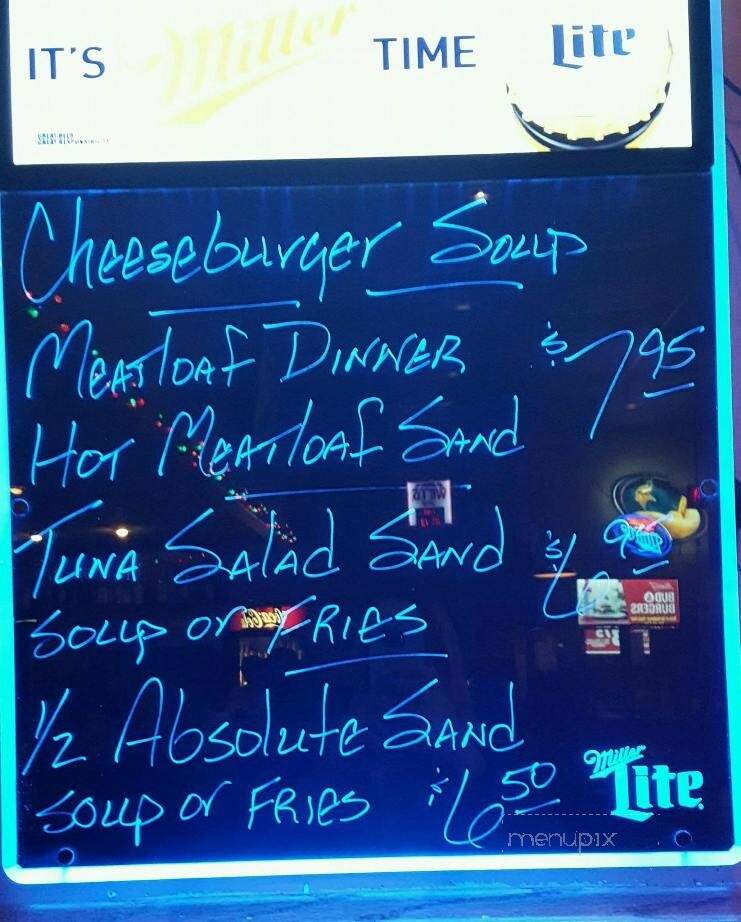 IT'S Miller TIME Lite
Cheeseburger Soup
Meatloaf Dinner $7.95
Hot Meatloaf Sand
Tuna Salad Sand $6.95
Soup or Fries
1/2 Absolute Sand
Soup or Fries $6.50
Coca-Cola
BUD &
BURGERS
Miller
Lite
menupix